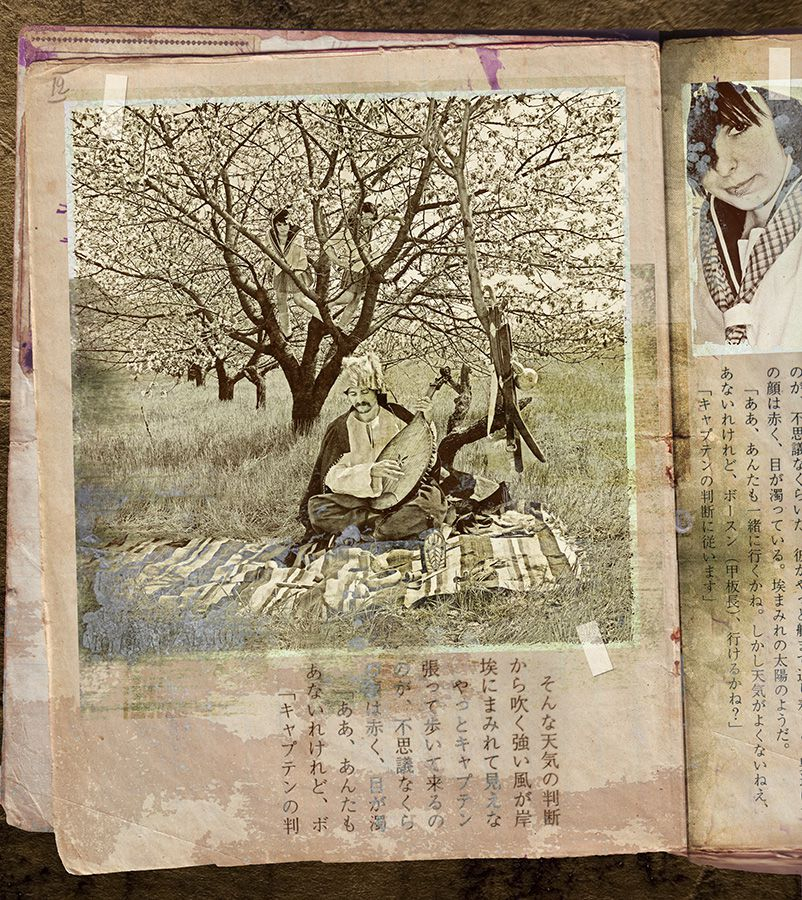 12
そんな天気の判断
から吹く強い風が岸
埃にまみれて見えな
やっとキャプテン
張って歩いて来るの
のが、不思議なくら
の顔は赤く、目が濁
「ああ、あんたも
あないれけれど、ボ
「キャプテンの判
のが、不思議なくらいだ。
の顔は赤く、目が濁っている。埃まみれの太陽のようだ。
「ああ、あんたも一緒に行くかね。しかし天気がよくないねえ、
あないれけれど、ボースン（甲板長）、行けるかね？」
「キャプテンの判断に従います」